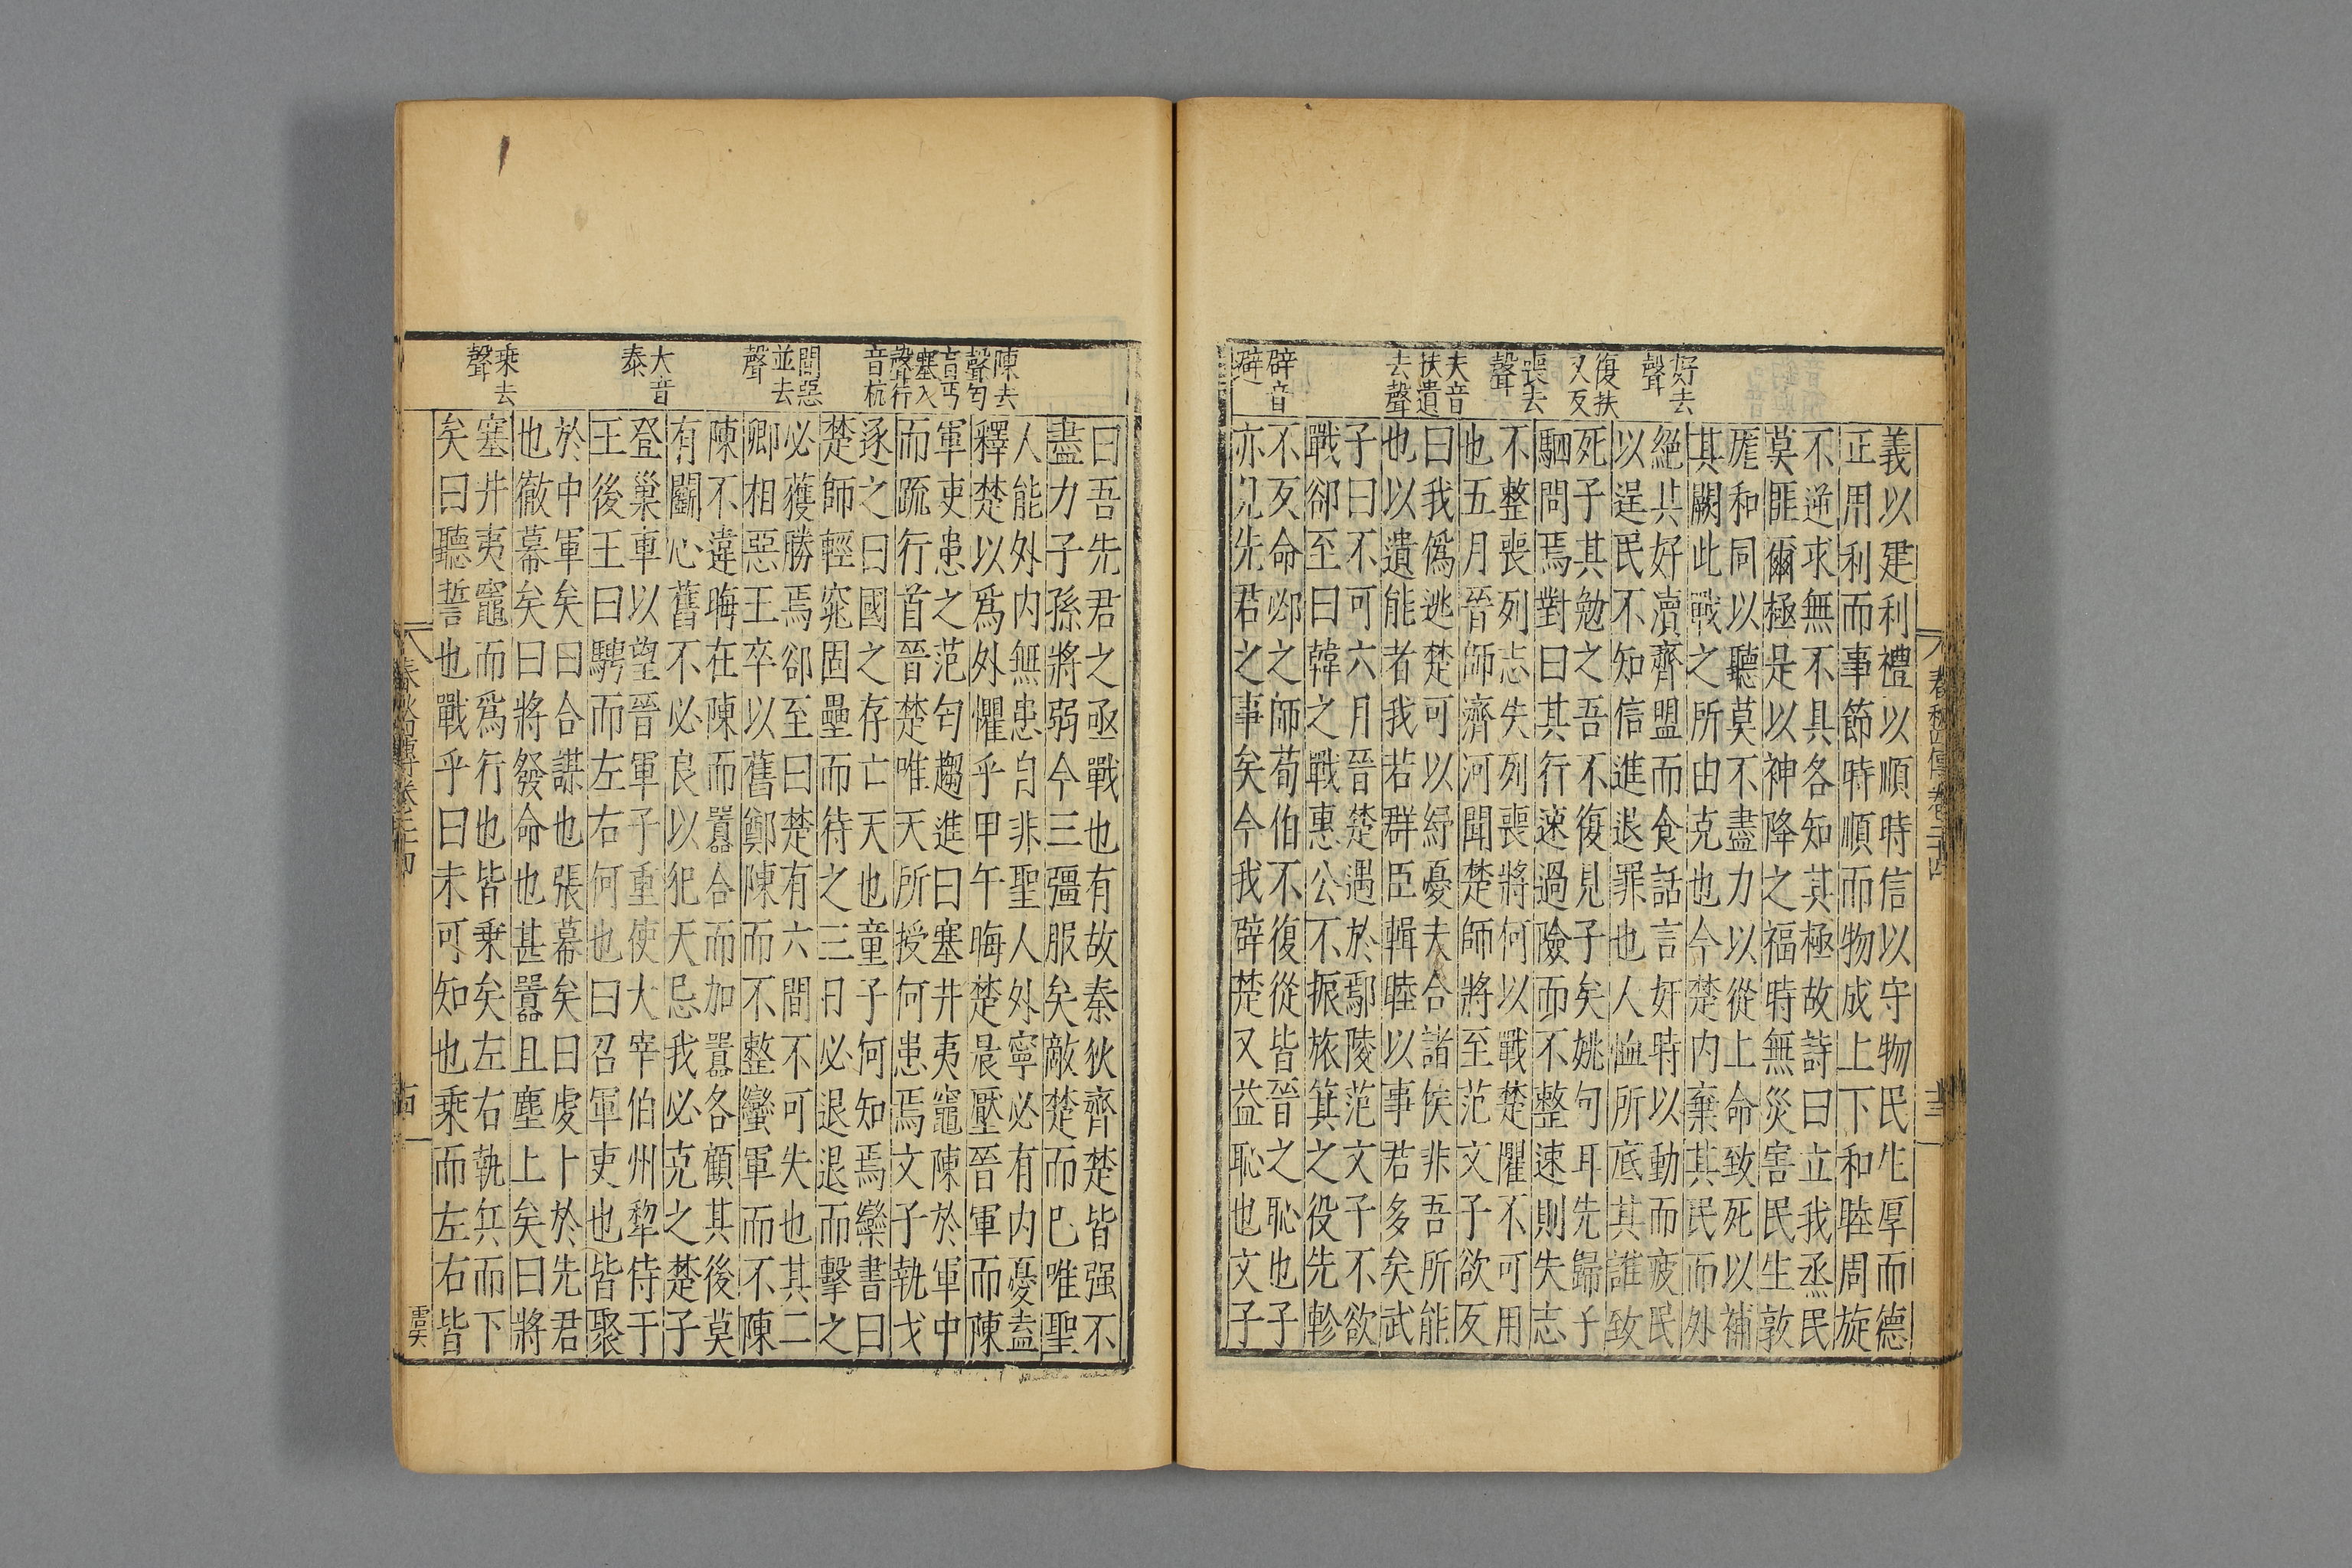 義以建利禮以順時信以守物民生厚而德
正用利而事節時順而物成上下和睦周旋
不逆求無不具各知其極故詩曰立我烝民
莫匪爾極是以神降之福時無災害民生敦
厖和同以聽莫不盡力以從上命致死以補
其闕此戰之所由克也今楚內棄其民而外
絕其好瀆齊盟而食話言奸時以動而疲民
以逞民不知信進退罪也人恤所底其誰致
死子其勉之吾不復見子矣姚句耳先歸子
駟問焉對曰其行速過險而不整速則失志
不整喪列志失列喪將何以戰楚懼不可用
也五月晉師濟河聞楚師將至范文子欲反
曰我偽逃楚可以紓憂夫合諸侯非吾所能
也以遺能者我若群臣輯睦以事君多矣武
子曰不可六月晉楚遇於鄢陵范文子不欲
戰郤至曰韓之戰惠公不振旅箕之役先軫
不反命邲之師荀伯不復從皆晉之恥也子
亦見先君之事矣今我辟楚又益恥也文子
好去聲
復扶又反
喪去聲
夫音扶遺去聲
辟音避
春秋四傳卷二十四
十三
曰吾先君之亟戰也有故秦狄齊楚皆强不
盡力子孫將弱今三彊服矣敵楚而已唯聖
人能外內無患自非聖人外寧必有內憂盍
釋楚以爲外懼乎甲午晦楚晨壓晉軍而陳
軍吏患之范匄趨進曰塞井夷竈陳於軍中
而疏行首晉楚唯天所授何患焉文子執戈
逐之曰國之存亡天也童子何知焉欒書曰
楚師輕窕固壘而待之三日必退退而擊之
必獲勝焉郤至曰楚有六間不可失也其二
卿相惡王卒以舊鄭陳而不整蠻軍而不陳
陳不違晦在陳而嚻合而加嚻各顧其後莫
有鬬心舊不必良以犯天忌我必克之楚子
登巢車以望晉軍子重使大宰伯州犂侍于
王後王曰騁而左右何也曰召軍吏也皆聚
於中軍矣曰合謀也張幕矣曰虔卜於先君
也徹幕矣曰將發命也甚嚻且塵上矣曰將
塞井夷竈而爲行也皆乘矣左右執兵而下
矣曰聽誓也戰乎曰未可知也乘而左右皆
陳去聲匄音丐塞入聲行音杭
間惡並去聲
大音泰
乘去聲
春秋四傳卷二十四
十四